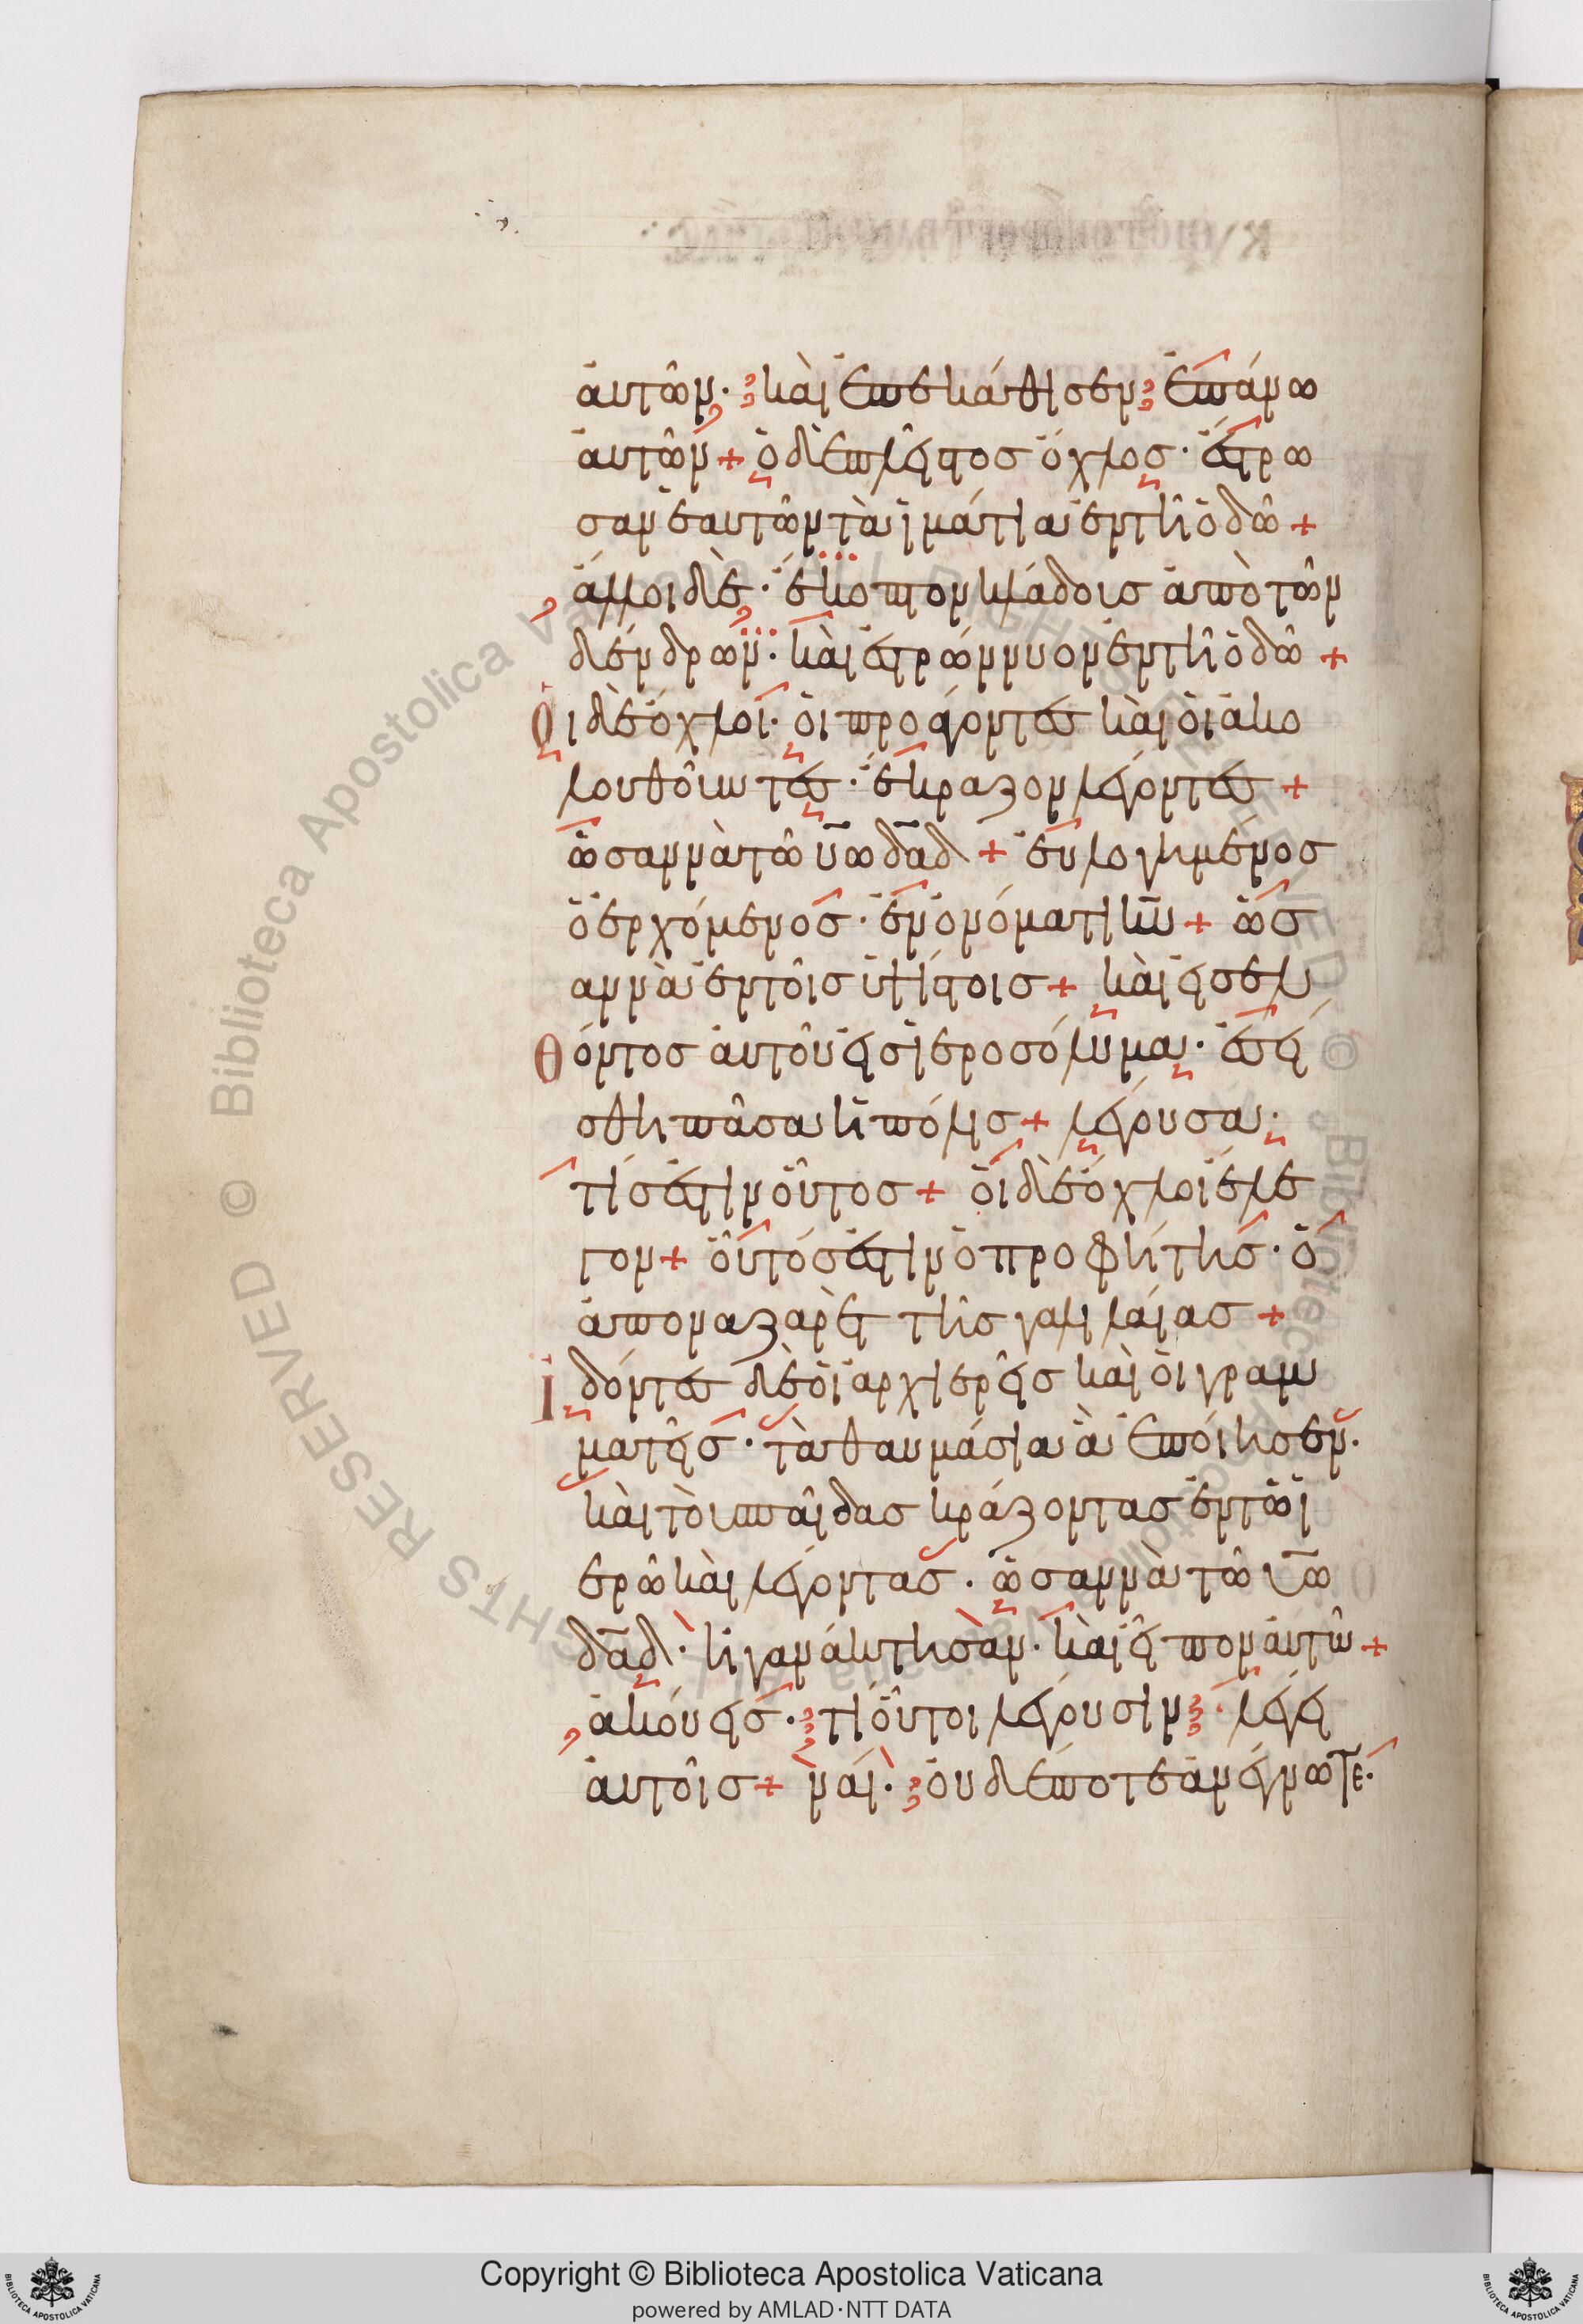 αὐτῶν· καὶ ἐπεκάθισεν ἐπάνω
αὐτῶν + ὁ δὲ πλεῖστος ὄχλος· ἔστρω
σαν ἑαυτῶν τὰ ἱμάτια ἐν τῆ ὁδῶ +
ἄλλοι δὲ· ἔκοπτον κλάδους ἀπὸ τῶν
δένδρων· καὶ ἐστρώννυον ἐν τῆ ὁδῶ +
Οἱ δὲ ὄχλοι· οἱ προάγοντες καὶ οἱ ἀκο
λουθοῦντες· ἔκραζον λέγοντες +
ὡσαννὰ τῶ υ̅ω̅ δ̅α̅δ̅ + εὐλογημένος
ὁ ἐρχόμενος· ἐν ὀνόματι κ̅υ̅ + ὡσ
αννὰ ἐν τοῖς ὑψίστοις + καὶ εἰσελ
Θόντος αὐτοῦ εἰς ἱεροσόλυμα· ἐσεί
σθη πᾶσα ἡ πόλις + λέγουσα·
τίς ἐστιν οὗτος + οἱ δὲ ὄχλοι ἔλε
γον + οὗτός ἐστιν ὁ προφήτης· ὁ
ἀπο ναζαρὲτ τῆς γαλιλαίας +
Ἰδόντες δὲ οἱ ἀρχιερεῖς καὶ οἱ γραμ
ματεῖς· τὰ θαυμάσια ἃ ἐποίησεν·
καὶ τοὺς παῖδας κράζοντας ἐν τῶ ἱ
ερῶ καὶ λέγοντας· ὡσαννὰ τῶ υ̅ω̅
δ̅α̅δ̅· ἠγανάκτησαν· καὶ εἶπον αὐτῶ +
ἀκούεις· τί οὗτοι λέγουσιν· λέγει
αὐτοῖς + ναί· οὐδέποτε ἀνέγνωτε·
Copyright © Biblioteca Apostolica Vaticana
powered by AMLAD·NTT DATA